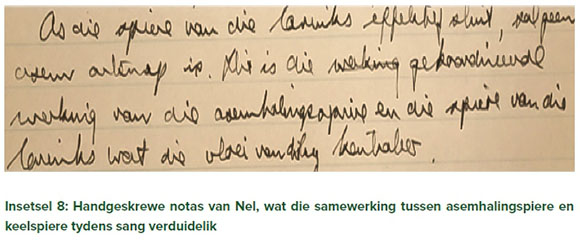 As die spiere van die larinks effektief sluit, sal geen
asem ontsnap nie. Dit is die werking gekoordineerde
werking van die asemhalingspiere en die spiere van die
larinks wat die vloei van die lug kontroleer.
Insetsel 8: Handgeskrewe notas van Nel, wat die samewerking tussen asemhalingspiere en
keelspiere tydens sang verduidelik